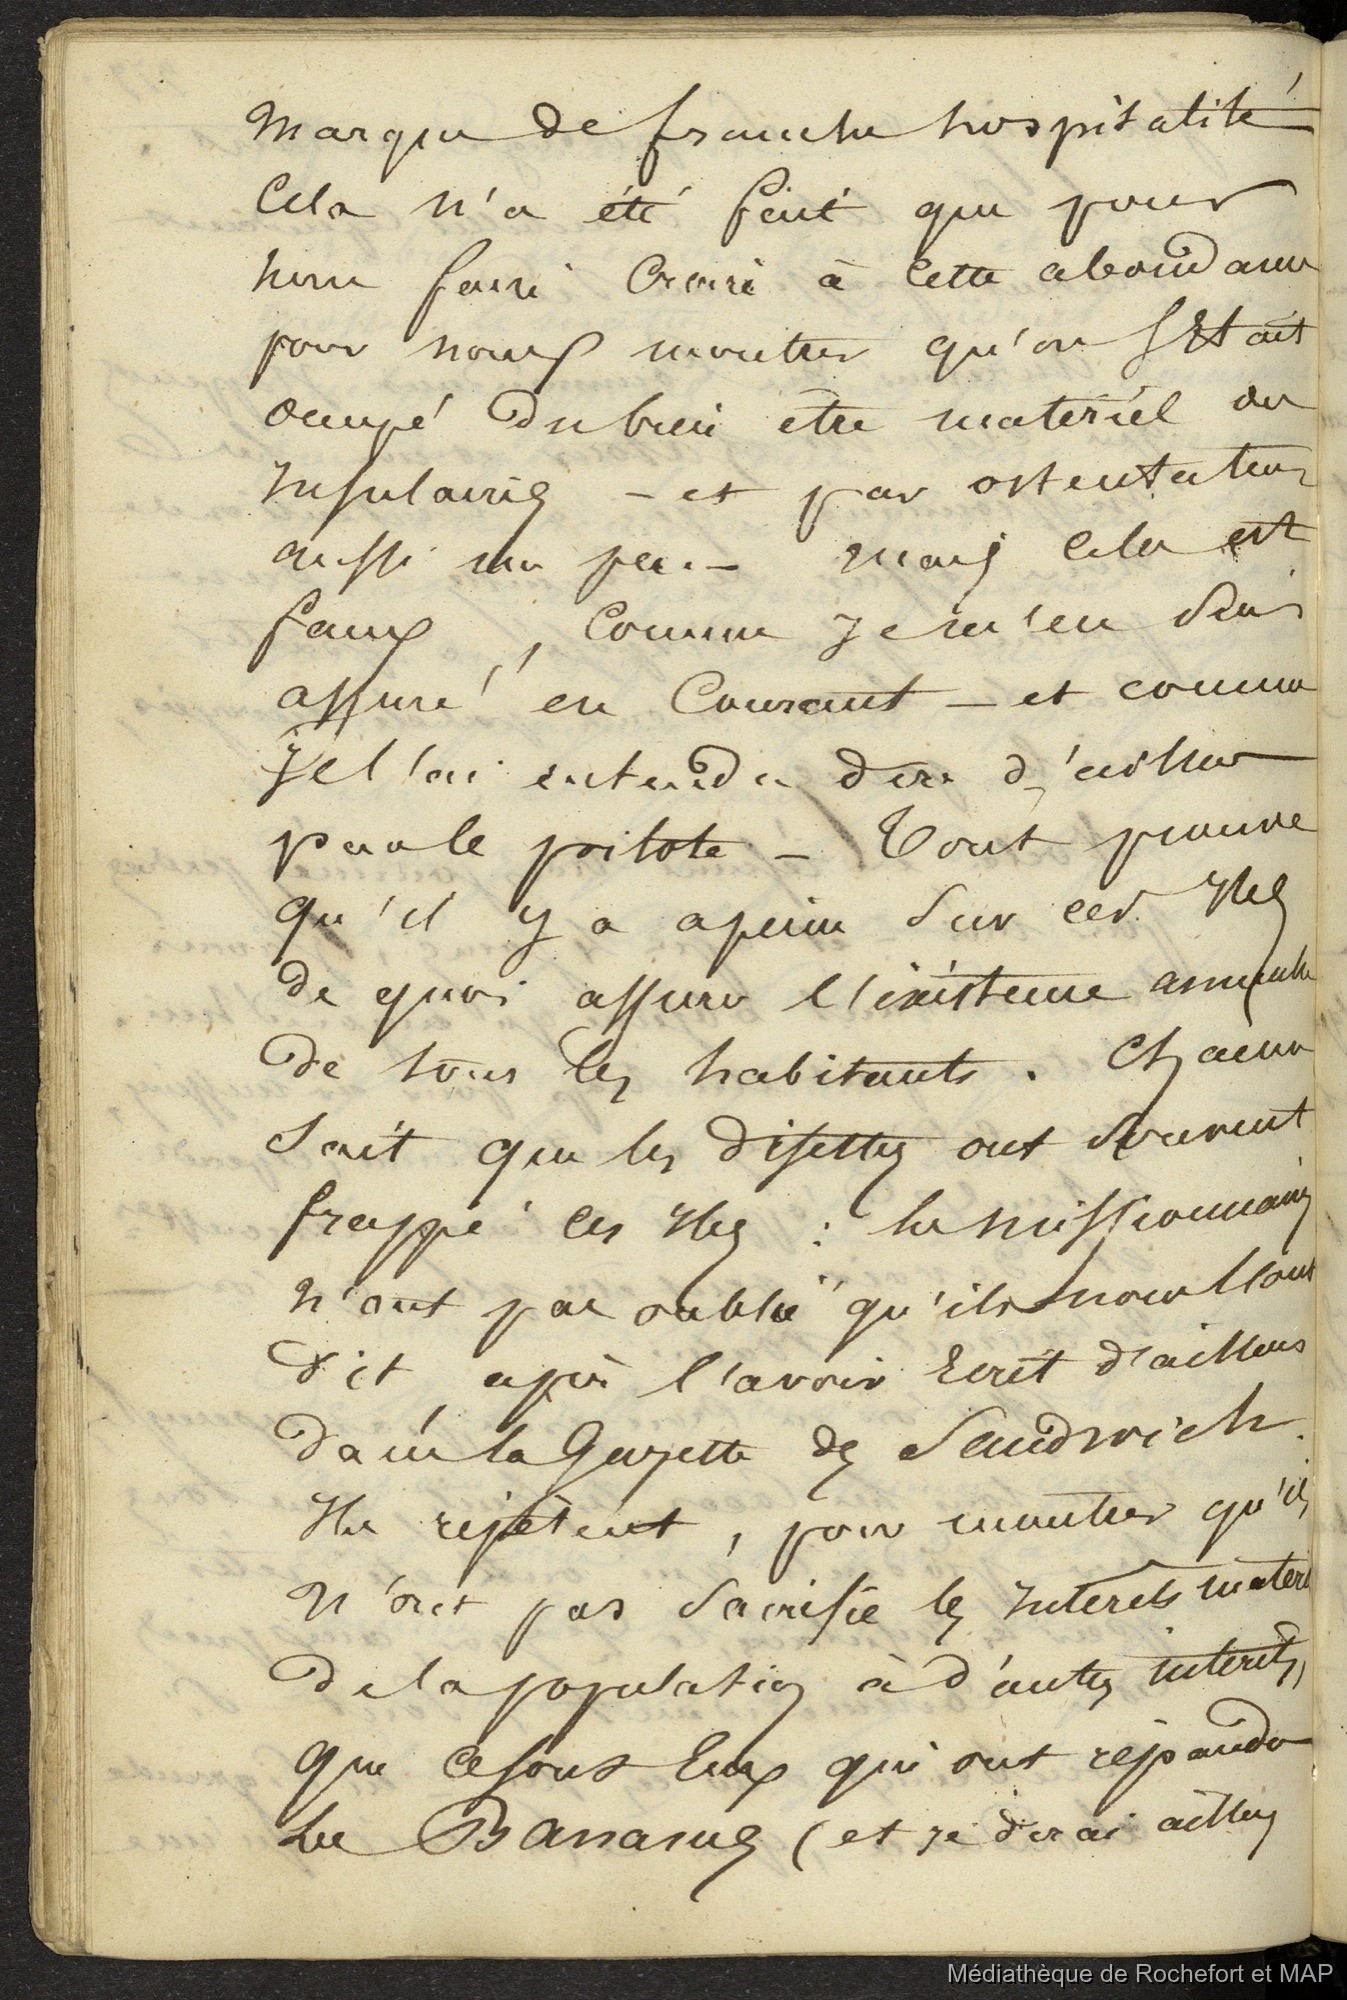 marque de franche hospitalité
Cela n'a été fait que pour
nous faire Croire à cette abondance
pour nous montrer qu'on s'Etait
occupé du bien être materiel des
Insulaires – et par ostentation
aussi un peu – mais Cela est
faux, Comme Je m'en Suis
assuré en Courant – et comme
Je l'ai entendu dire d'ailleurs
par le pilote – Tout prouve
qu'il y a a peine Sur ces Iles
de quoi assurer l'existence annuelle
De tous les habitants. Chacun
Sait que les Disettes ont Souvent
frappé ces Iles : les missionnaires
n'ont pas oublié qu'ils nous l'ont
Dit après l'avoir Ecrit d'ailleurs
Dans la Gazette des Sandwich.
Ils répètent, pour montrer qu'ils
N'ont pas Sacrifié les Interets materiels
De la population à d'autres interets,
que ce sont Eux qui ont répandu
les Bananes (et je dirai ailleurs
Médiathèque de Rochefort et MAP